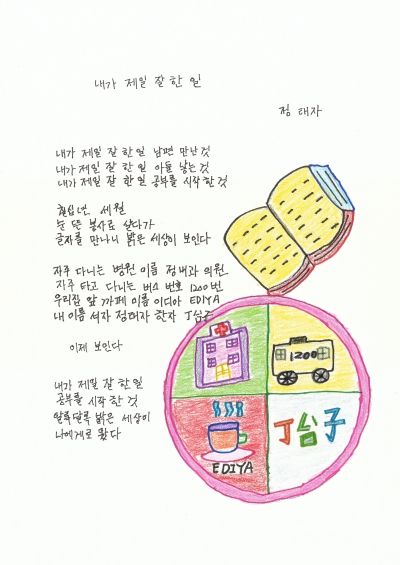 내가 제일 잘 한 일
정 태자
내가 제일 잘 한 일 남편 만난 것
내가 제일 잘 한 일 아들 낳는 것
내가 제일 잘 한 일 공부를 시작 한 것
칠십년 세월
눈 뜬 봉사로 살다가
글자를 만나니 밝은 세상이 보인다
자주 다니는 병원 이름 정내과 의원
자주 타고 다니는 버스 번호 1200번
우리집 앞 까페 이름 이디야 EDIYA
내 이름 석자 정태자 한자 丁台子
이제 보인다
내가 제일 잘 한 일
공부를 시작 한 것
알록달록 밝은 세상이
나에게로 왔다
1200
EDIYA
丁台子